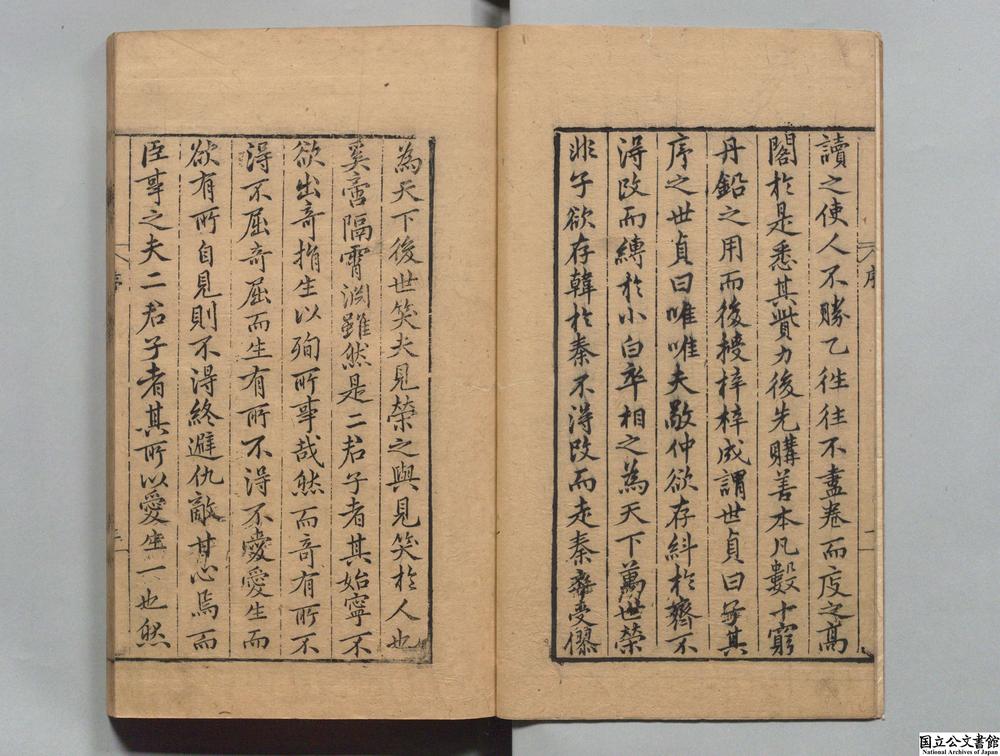 讀之使人不勝乙徃往不盡卷而庋之髙
閣於是悉其貲力後先購善本凡數十窮
丹鉛之用而後授梓梓成謂世貞曰子其
序之世貞曰唯唯夫敬仲欲存糾於齊不
淂改而縛於小白卒相之為天下萬世榮
非子欲存韓於秦不淂改而走秦齎受僇
序
二
為天下後世笑夫見榮之與見笑於人也
奚啻隔霄淵雖然是二君子者其始寧不
欲出竒捐生以殉所事哉然而竒有所不
淂不屈竒屈而生有所不淂不愛愛生而
欲有所自見則不淂終避仇敵甘心焉而
臣事之夫二君子者其所以愛生一也然
序
国立公文書館
National Archives of Japan